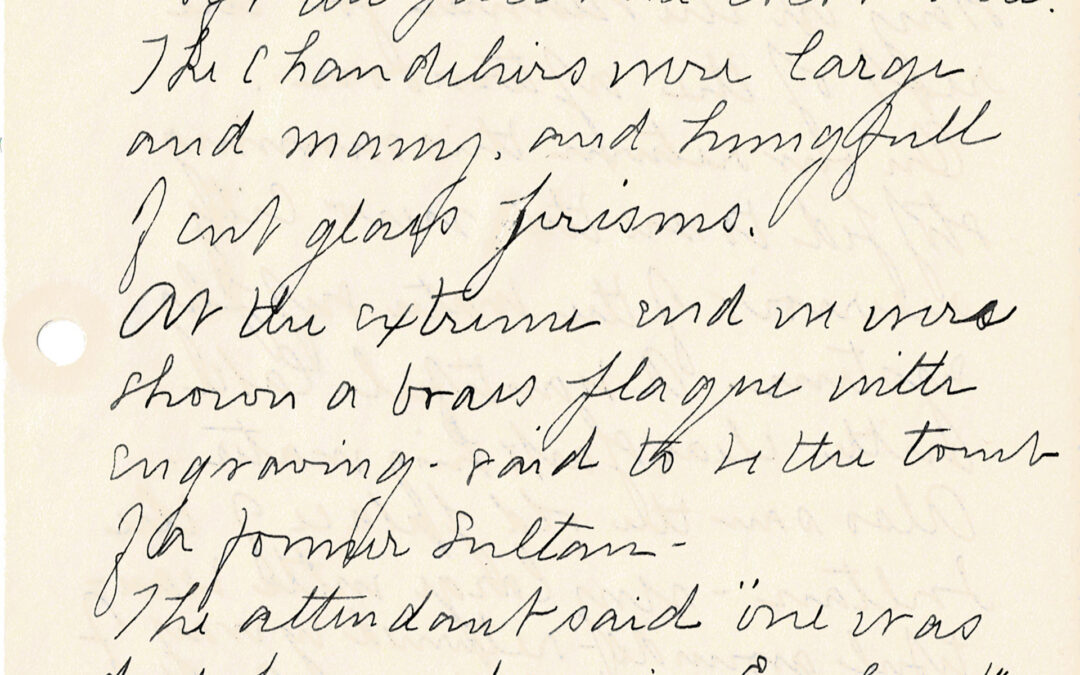 The Chandeliers were large
and many, and hung full
of cut glass prisms.
At the extreme end we were
shown a brass plaque with
engraving - said to be the tomb
of a former Sultan -
The attendant said "one was